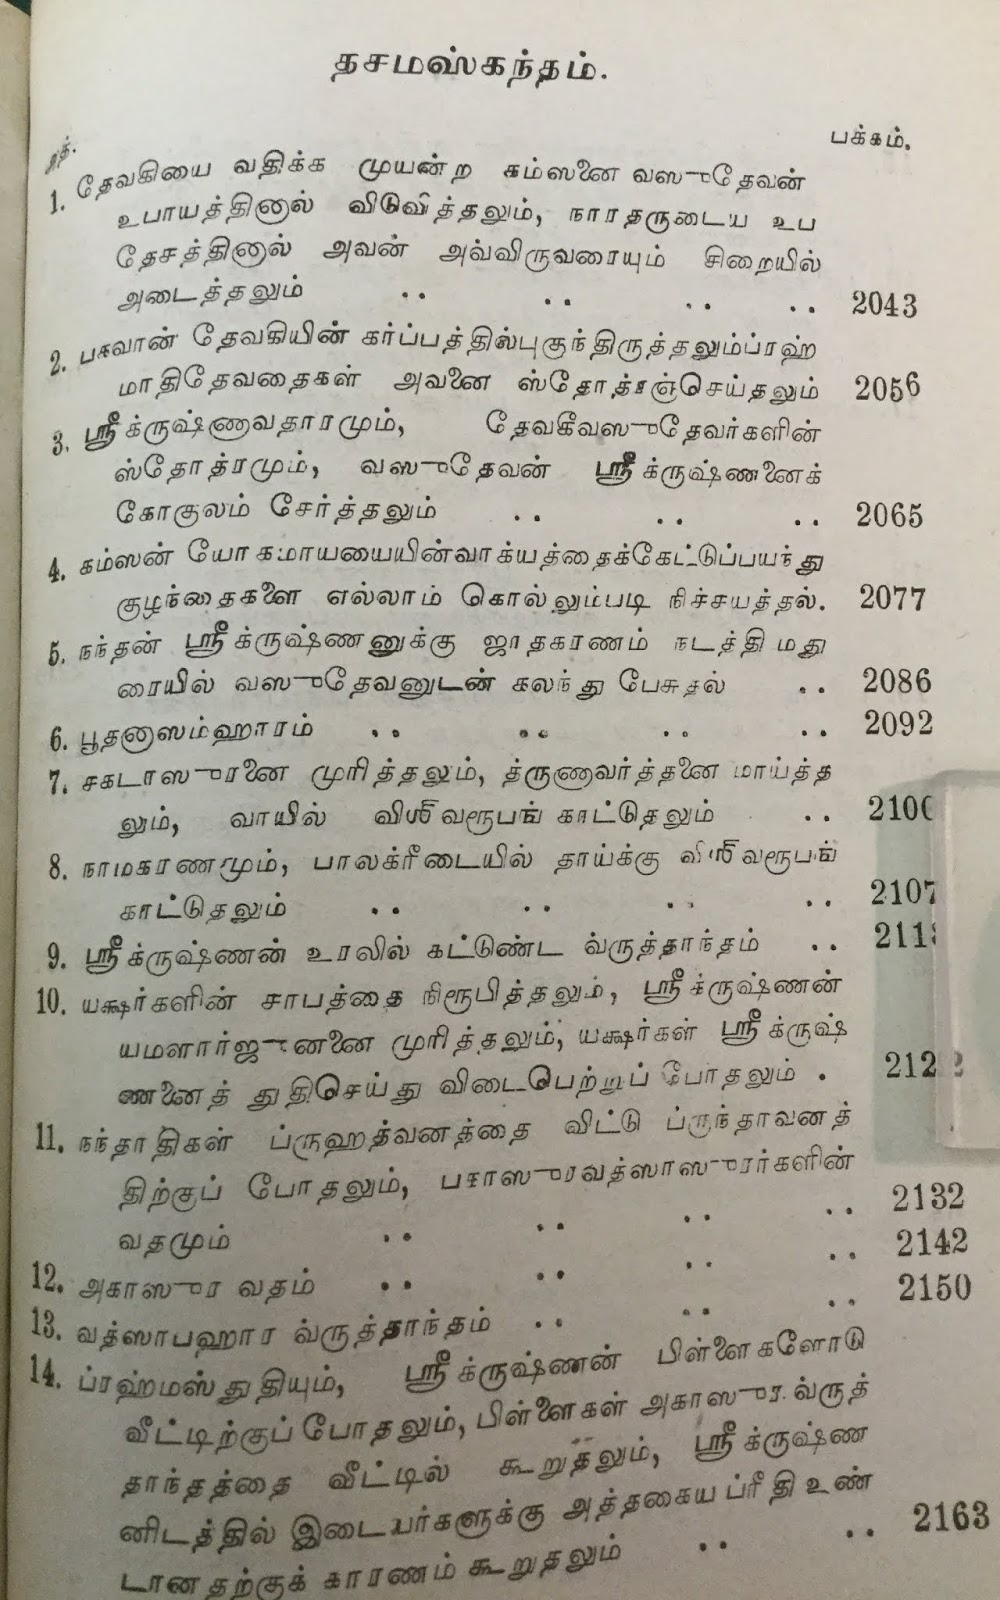 தசமஸ்கந்தம்.
பக்கம்.
1. தேவகியை வதிக்க முயன்ற கம்ஸனை வஸுதேவன்
உபாயத்தினால் விடுவித்தலும், நாரதருடைய உப
தேசத்தினால் அவன் அவ்விருவரையும் சிறையில்
அடைத்தலும் .. .. .. .. 2043
2. பகவான் தேவகியின் கர்ப்பத்தில்புகுந்திருத்தலும்ப்ரஹ்
மாதிதேவதைகள் அவனை ஸ்தோத்ரஞ்செய்தலும் 2056
3. ஸ்ரீக்ருஷ்ணாவதாரமும், தேவகீவஸுதேவர்களின்
ஸ்தோத்ரமும், வஸுதேவன் ஸ்ரீக்ருஷ்ணனைக்
கோகுலம் சேர்த்தலும் .. .. .. 2065
4. கம்ஸன் யோகமாயயையின்வாக்யத்தைக்கேட்டுப்பயந்து
குழந்தைகளை எல்லாம் கொல்லும்படி நிச்சயத்தல். 2077
5. நந்தன் ஸ்ரீக்ருஷ்ணனுக்கு ஜாதகரணம் நடத்தி மது
ரையில் வஸுதேவனுடன் கலந்து பேசுதல் .. 2086
6. பூதனாஸம்ஹாரம் .. .. .. .. 2092
7. சகடாஸுரனை முரித்தலும், த்ருணாவர்த்தனை மாய்த்த
லும், வாயில் விஶ்வரூபங் காட்டுதலும் .. 2100
8. நாமகரணமும், பாலக்ரீடையில் தாய்க்கு விஶ்வரூபங்
காட்டுதலும் .. .. .. .. 2107
9. ஸ்ரீக்ருஷ்ணன் உரலில் கட்டுண்ட வ்ருத்தாந்தம் ..
10. யக்ஷர்களின் சாபத்தை நிரூபித்தலும், ஸ்ரீக்ருஷ்ணன்
யமளார்ஜுனனை முரித்தலும், யக்ஷர்கள் ஸ்ரீக்ருஷ்
ணனைத் துதிசெய்து விடைபெற்றுப் போதலும் . 2122
11. நந்தாதிகள் ப்ருஹத்வனத்தை விட்டு ப்ருந்தாவனத்
திற்குப் போதலும், பகாஸுரவத்ஸாஸுரர்களின்
வதமும் .. .. .. .. 2132
12. அகாஸுர வதம் .. .. .. .. 2142
13. வத்ஸாபஹார வ்ருத்தாந்தம் .. .. .. 2150
14. ப்ரஹ்மஸ்துதியும், ஸ்ரீக்ருஷ்ணன் பிள்ளைகளோடு
வீட்டிற்குப் போதலும், பிள்ளைகள் அகாஸுர வ்ருத்
தாந்தத்தை வீட்டில் கூறுதலும், ஸ்ரீக்ருஷ்ண
னிடத்தில் இடையர்களுக்கு அத்தகைய ப்ரீதி உண்
டானதற்குக் காரணம் கூறுதலும் .. .. 2163